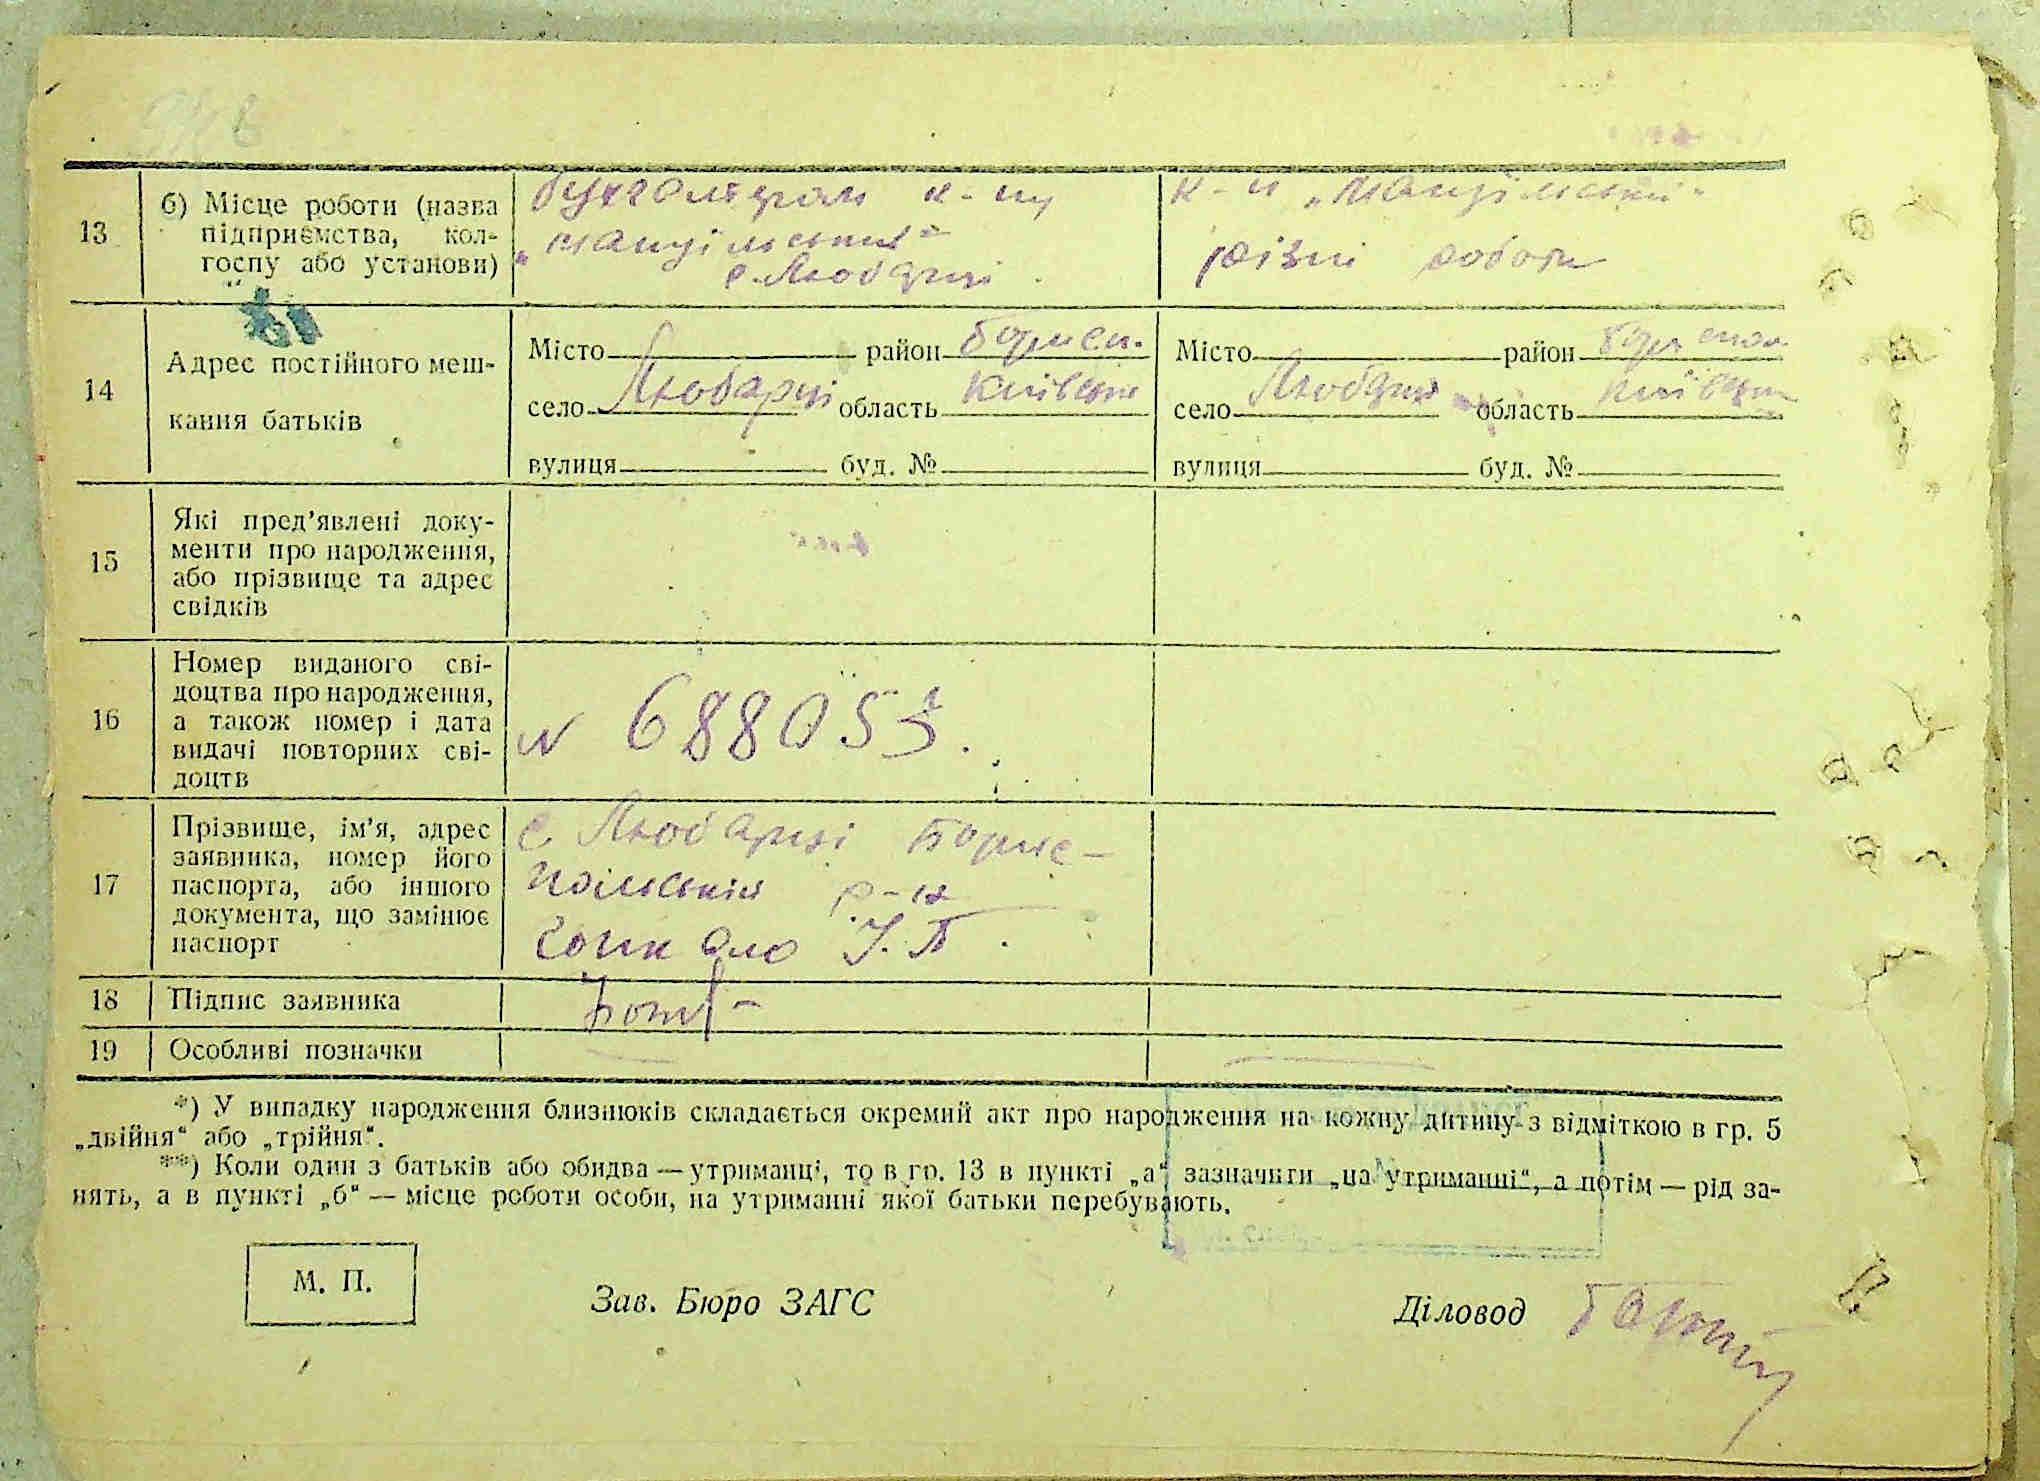 13
б) Місце роботи (назва
підприємства, кол-
госпу або установи)
бухгалтером к-пу
с. Любарці
к-п
різні роботи
14
Адрес постійного меш-
кання батьків
Місто район Борисп.
село Любарці область Київська
вулиця буд. №
Місто район
село Любарці область Київська
вулиця буд. №
15
Які пред’явлені доку-
менти про народження,
або прізвище та адрес
свідків
16
Номер виданого сві-
доцтва про народження,
а також номер і дата
видачі повторних сві-
доцтв
N 688053.
17
Прізвище, ім’я, адрес
заявника, номер його
паспорта, або іншого
документа, що замінює
паспорт
с Любарці Борис-
р-н
18
Підпис заявника
19
Особливі позначки
*) У випадку народження близнюків складається окремий акт про народження на кожну дитину з відміткою в гр. 5
„двійня“ або „трійня“.
**) Коли один з батьків або обидва — утриманці, то в гр. 13 в пункті „а“ зазначити „на утриманні“, а потім — рід за-
нять, а в пункті „б“ — місце роботи особи, на утриманні якої батьки перебувають.
М. П.
Зав. Бюро ЗАГС
Діловод